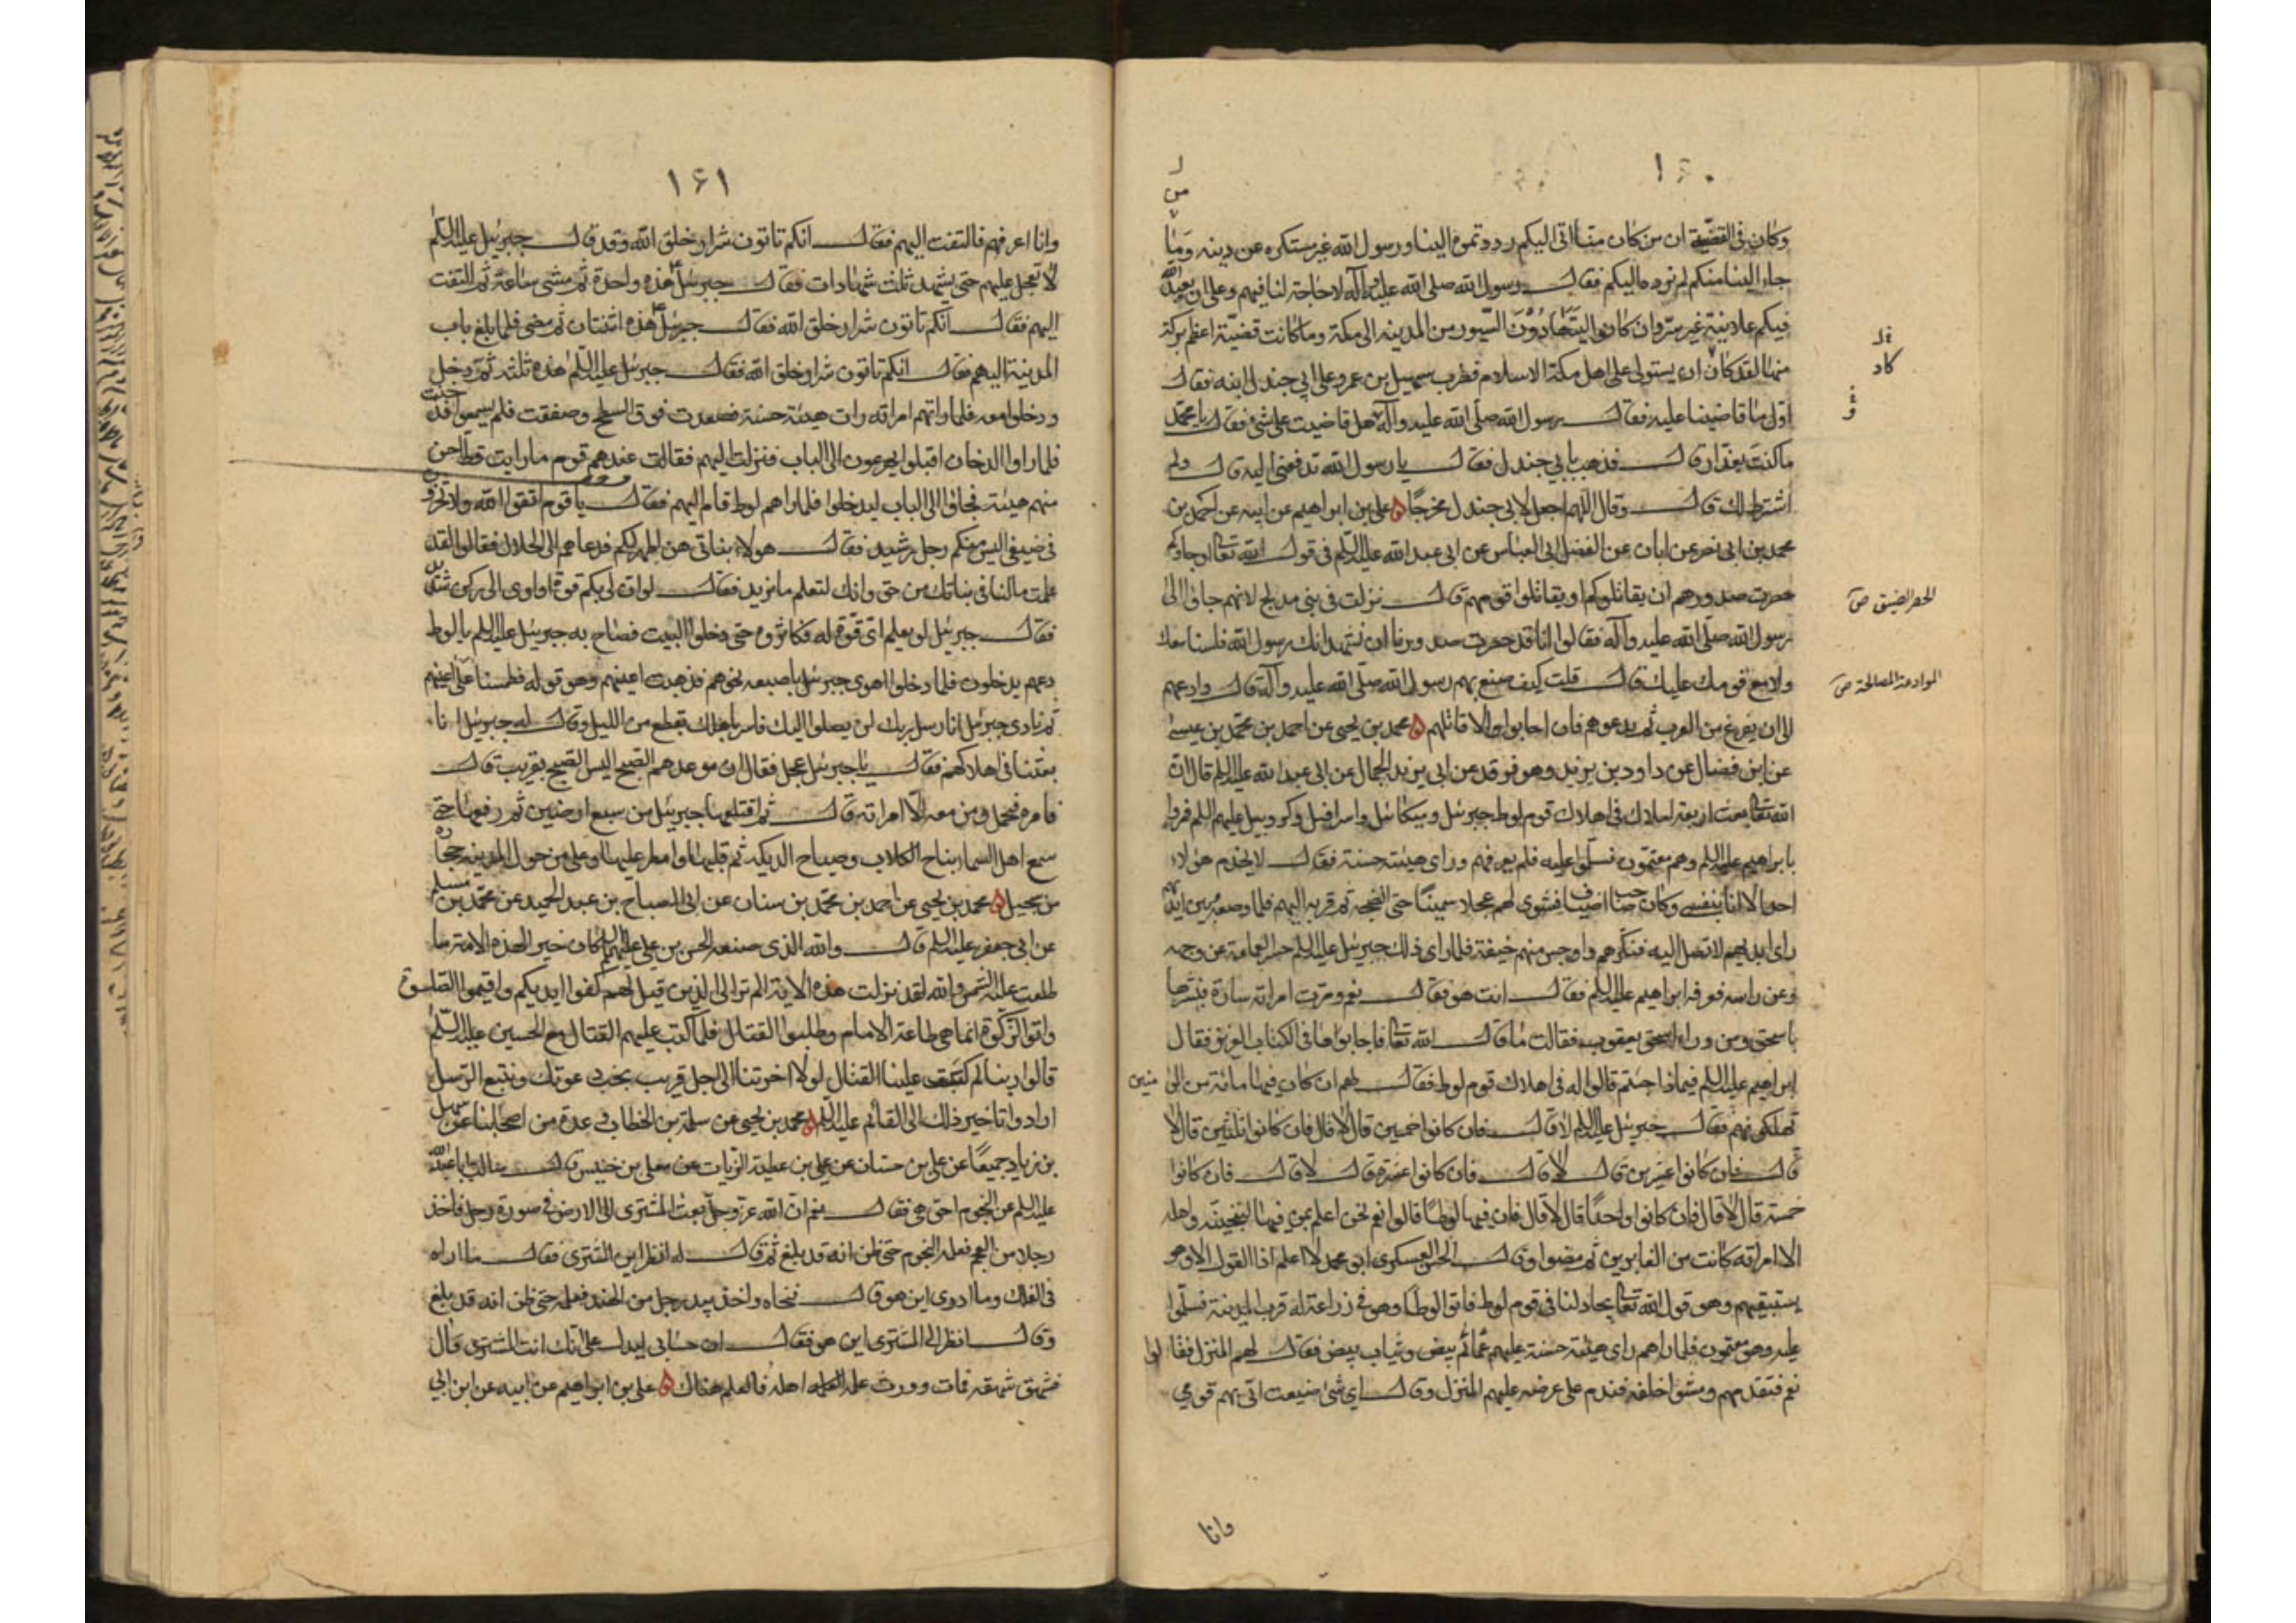 ١٦٠
وكان في القضية ان من كان منا اتى اليكم رددتموه الينا ورسول الله غير مستكره عن دينه وما
جاء الينا منكم لم نرده اليكم فقال رسول الله صلى الله عليه وآله لا حاجة لنا فيهم وعلى ان يعبد الله
فيكم علانية غير سر وان كانوا ليتهادون السيور من المدينة الى مكة وما كانت قضية اعظم بركة
منها لقد كاد ان يستولى على اهل مكة الاسلام فضرب سهيل بن عمرو على ابي جندل ابنه فقال
اول ما قاضينا عليه فقال رسول الله صلى الله عليه وآله هل قاضيت على شئ فقال يا محمد
ما كنت بغدار قال فذهب بابي جندل فقال يا رسول الله تدفعني اليه قال ولم
اشترط لك قال وقال اللهم اجعل لابي جندل مخرجا ه علي بن ابراهيم عن ابيه عن احمد بن
محمد بن ابي نصر عن ابان عن الفضل ابي العباس عن ابي عبد الله عليه السلم في قول الله تعا اوجاؤكم
حصرت صدورهم ان يقاتلوكم او يقاتلوا قومهم قال نزلت في بني مدلج لانهم جاؤا الى
رسول الله صلى الله عليه وآله فقالوا انا قد حصرت صدورنا ان نشهد انك رسول الله فلسنا معك
ولا مع قومك عليك قال قلت كيف صنع بهم رسول الله صلى الله عليه وآله قال وادعهم
الى ان يفرغ من العرب ثم يدعوهم فان اجابوا والا قاتلهم ه محمد بن يحيى عن احمد بن محمد بن عيسى
عن ابن فضال عن داود بن يزيد وهو فرقد عن ابي يزيد الجمال عن ابي عبد الله عليه السلم قال ان
الله تعا بعث اربعة املاك في اهلاك قوم لوط جبرئيل وميكائيل واسرافيل وكروبيل عليهم السلم فمروا
بابراهيم عليه السلم وهم معتمون فسلموا عليه فلم يعرفهم وراى هيئة حسنة فقال لا يخدم هؤلاء
احد الا انا بنفسي وكان صاحب اضياف فشوى لهم عجلا سمينا حتى انضجه ثم قربه اليهم فلما وضعه بين ايديهم
راى ايديهم لا تصل اليه فنكرهم واوجس منهم خيفة فلما راى ذلك جبرئيل عليه السلم حسر العمامة عن وجهه
وعن راسه فعرفه ابراهيم عليه السلم فقال انت هو فقال نعم ومرت امراته سارة فبشرها
باسحق ومن وراء اسحق يعقوب فقالت ما قال الله تعا فاجابوها في الكتاب العزيز فقال
ابراهيم عليه السلم فيما ذا جئتم قالوا له في اهلاك قوم لوط فقال لهم ان كان فيها مائة من المؤمنين
تهلكونهم فقال جبرئيل عليه السلم لا قال فان كانوا خمسين قال لا قال فان كانوا ثلثين قال لا
قال فان كانوا عشرين قال لا قال فان كانوا عشرة قال لا قال فان كانوا
خمسة قال لا قال فان كانوا واحدا قال لا قال فان فيها لوطا قالوا نعم نحن اعلم بمن فيها لننجينه واهله
الا امراته كانت من الغابرين ثم مضوا وقال الحسن العسكرى ابو محمد لا اعلم ذا القول الا وهو
يستبقيهم وهو قول الله تعا يجادلنا في قوم لوط فاتوا لوطا وهو في زراعة له قرب المدينة فسلموا
عليه وهم معتمون فلما راهم راى هيئة حسنة عليهم عمائم بيض وثياب بيض فقال لهم المنزل فقالوا
نعم فتقدمهم ومشوا خلفه فندم على عرضه عليهم المنزل وقال اي شئ صنعت اتى بهم قومي
كاد
الحصر الضيق ص
الموادعة المصالحة ص
وانا
١٦١
وانا اعرفهم فالتفت اليهم فقال انكم تاتون شرار خلق الله وقد قال جبرئيل عليه السلم
لا تعجل عليهم حتى يشهد ثلث شهادات فقال جبرئيل هذه واحدة ثم مشى ساعة ثم التفت
اليهم فقال انكم تاتون شرار خلق الله فقال جبرئيل هذه اثنتان ثم مضى فلما بلغ باب
المدينة اليهم فقال انكم تاتون شرار خلق الله فقال جبرئيل عليه السلم هذه ثلثة ثم دخل
ودخلوا معه فلما راتهم امراته رات هيئة حسنة فصعدت فوق السطح وصفقت فلم يسمعوا فدخنت
فلما راوا الدخان اقبلوا يهرعون الى الباب فنزلت اليهم فقالت عندهم قوم ما رايت قط احسن
منهم هيئة فجاؤا الى الباب ليدخلوا فلما راهم لوط قام اليهم فقال يا قوم اتقوا الله ولا تخزون
في ضيفي اليس منكم رجل رشيد فقال هولاء بناتي هن اطهر لكم فدعاهم الى الحلال فقالوا لقد
علمت ما لنا في بناتك من حق وانك لتعلم ما نريد فقال لو ان لي بكم قوة او اوى الى ركن شديد
فقال جبرئيل لو يعلم اي قوة له فكاثروه حتى دخلوا البيت فصاح به جبرئيل عليه السلم يا لوط
دعهم يدخلون فلما دخلوا اهوى جبرئيل باصبعه نحوهم فذهبت اعينهم وهو قوله فطمسنا على اعينهم
ثم نادى جبرئيل انا رسل ربك لن يصلوا اليك فاسر باهلك بقطع من الليل وقال له جبرئيل انا
بعثنا في اهلاكهم فقال يا جبرئيل عجل فقال ان موعدهم الصبح اليس الصبح بقريب قال
فامره فتحمل ومن معه الا امراته قال ثم اقتلعها جبرئيل من سبع ارضين ثم رفعها حتى
سمع اهل السماء نباح الكلاب وصياح الديكة ثم قلبها وامطر عليها وعلى من حول المدينة حجارة
من سجيل ه محمد بن يحيى عن احمد بن محمد بن سنان عن ابي الصباح بن عبد الحميد عن محمد بن مسلم
عن ابي جعفر عليه السلم قال والله الذى صنعه الحسن بن علي عليهما السلم كان خيرا لهذه الامة مما
طلعت عليه الشمس والله لقد نزلت هذه الاية الم تر الى الذين قيل لهم كفوا ايديكم واقيموا الصلوة
واتوا الزكوة انما هي طاعة الامام وطلبوا القتال فلما كتب عليهم القتال مع الحسين عليه السلم
قالوا ربنا لم كتبت علينا القتال لولا اخرتنا الى اجل قريب نجب دعوتك ونتبع الرسل
ارادوا تاخير ذلك الى القائم عليه السلم ه محمد بن يحيى عن سلمة بن الخطاب في عدة من اصحابنا عن سهل
بن زياد جميعا عن علي بن حسان عن علي بن عطية الزيات عن معلى بن خنيس قال سالت ابا عبد الله
عليه السلم عن النجوم احق هي فقال نعم ان الله عز وجل بعث المشترى الى الارض في صورة رجل فاخذ
رجلا من العجم فعلمه النجوم حتى ظن انه قد بلغ ثم قال له انظر اين المشترى فقال ما اراه
في الفلك وما ادرى اين هو قال فنحاه واخذ بيد رجل من الهند فعلمه حتى ظن انه قد بلغ
وقال انظر الى المشترى اين هو فقال ان حسابي ليدل على انك انت المشترى قال
فشهق شهقة فمات وورث علمه اهله فالعلم هناك ه علي بن ابراهيم عن ابيه عن ابن ابي